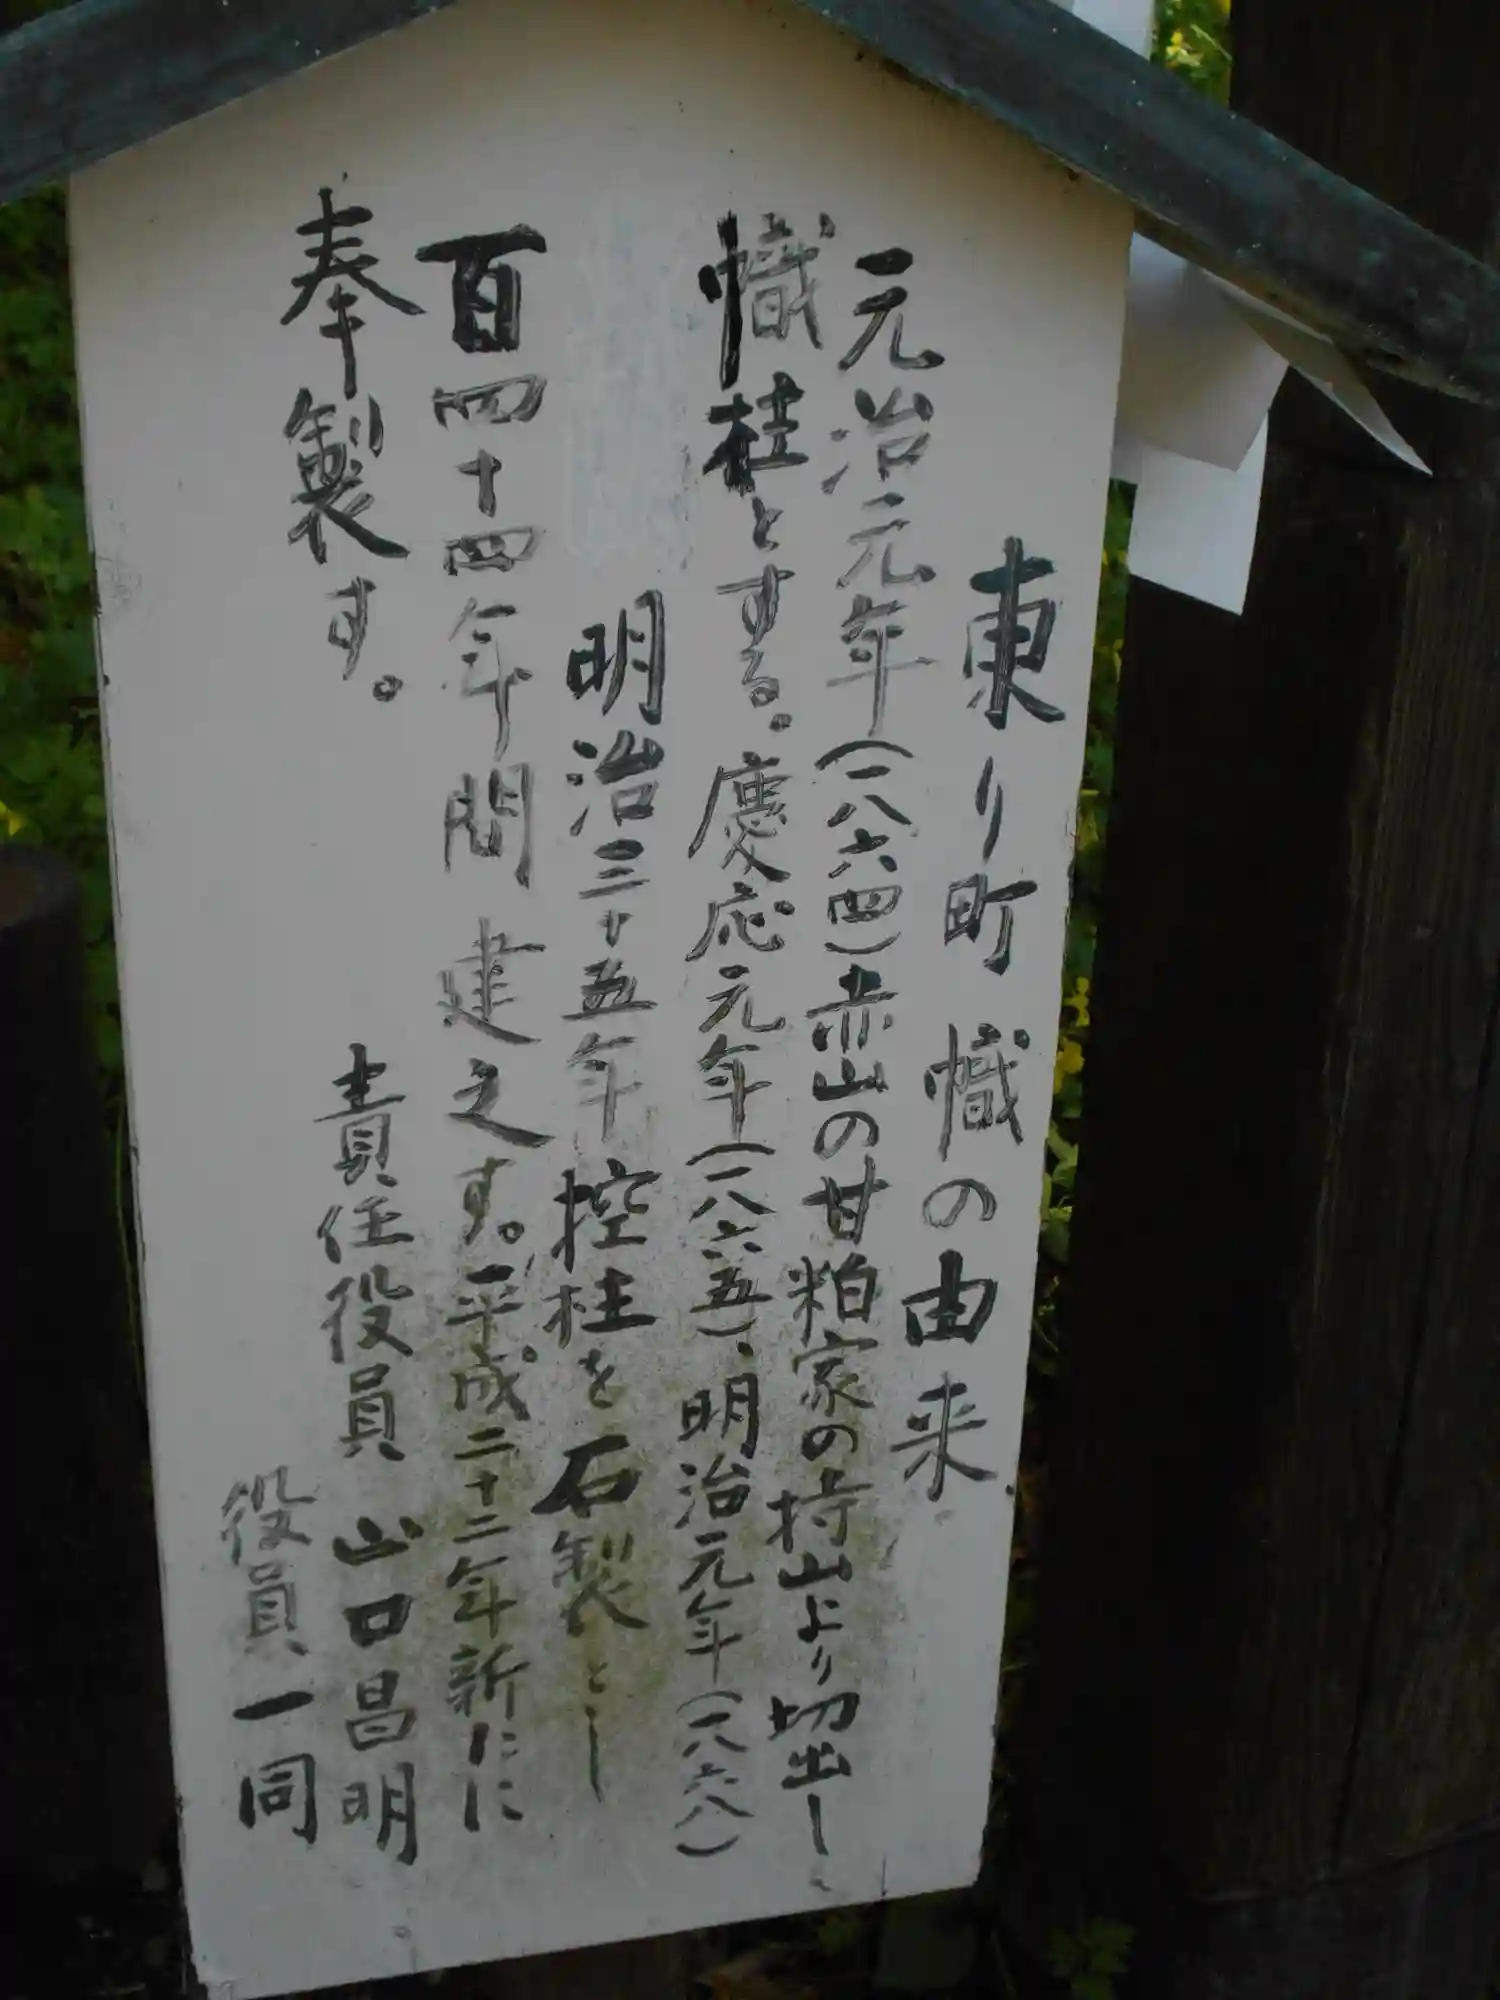 東り町幟の由来
元治元年(一八六四)赤山の甘粕家の持山より切出し、
幟柱とする。慶応元年(一八六五)、明治元年(一八六八)
明治三十五年控柱を石製とし
百四十四年間建之す。平成二十二年新たに
奉製す。
責任役員 山口昌明
役員一同